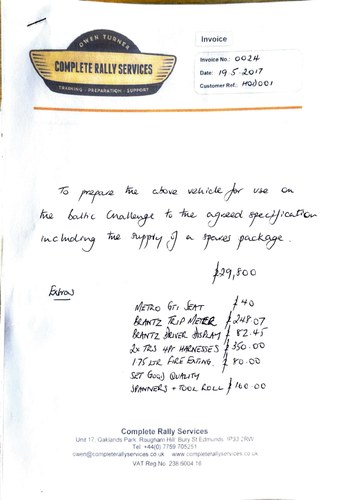 OWEN TURNER
COMPLETE RALLY SERVICES
TRAINING - PREPARATION - SUPPORT
Invoice
Invoice No.: 0024
Date: 19.5.2017
Customer Ref.: HOD001
To prepare the above vehicle for use on
the baltic challenge to the agreed specification
including the supply of a spares package.
£29,800
Extras
METRO GTi SEAT £40
BRANTZ TRIP METER £248.07
BRANTZ DRIVER DISPLAY £82.45
2x TRS 4PT HARNESSES £350.00
1.75 LTR FIRE EXTING. £80.00
SET GOOD QUALITY
SPANNERS + TOOL ROLL £160.00
Complete Rally Services
Unit 17, Oaklands Park, Rougham Hill, Bury St Edmunds, IP33 2RW
Tel: +44(0) 7759 705251
owen@completerallyservices.co.uk www.completerallyservices.co.uk
VAT Reg No: 238 6004 16